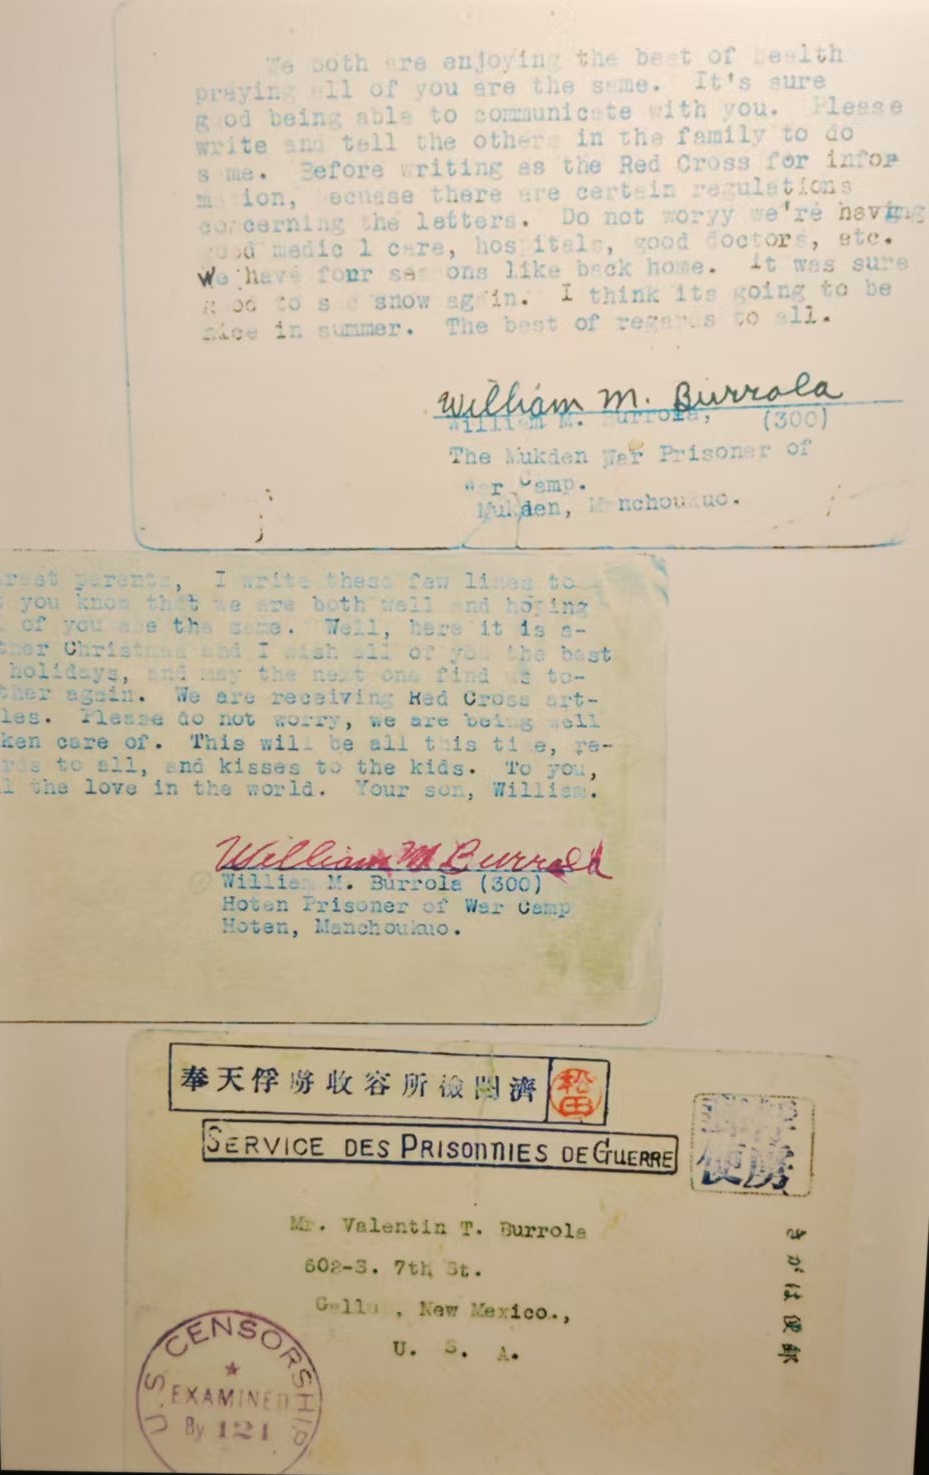 We both are enjoying the best of health
praying all of you are the same. It's sure
good being able to communicate with you. Please
write and tell the others in the family to do
same. Before writing as the Red Cross for infor
mation, ecuase there are certain regulations
concerning the letters. Do not woryy we're having
good medical care, hospitals, good doctors, etc.
We have four seasons like back home. It was sure
good to see snow again. I think its going to be
nice in summer. The best of regards to all.
William M. Burrola
William M. Burrola, (300)
The Mukden War Prisoner of
War Camp.
Mukden, Manchoukuo.
rest parents, I write these few lines to
you know that we are both well and hoping
of you are the same. Well, here it is a-
ther Christmas and I wish all of you the best
holidays, and may the next one find us to-
ther again. We are receiving Red Cross art-
les. Please do not worry, we are being well
ken care of. This will be all this time, re-
rds to all, and kisses to the kids. To you,
l the love in the world. Your son, William.
William M Burrola
William M. Burrola (300)
Hoten Prisoner of War Camp
Hoten, Manchoukuo.
奉天俘虜收容所檢閲濟
松田
SERVICE DES PRISONNIES DE GUERRE
俘虜
郵便
Mr. Valentin T. Burrola
602-S. 7th St.
Gallup, New Mexico.,
U. S. A.
きがは便郵
U.S. CENSORSHIP
EXAMINED
By 121